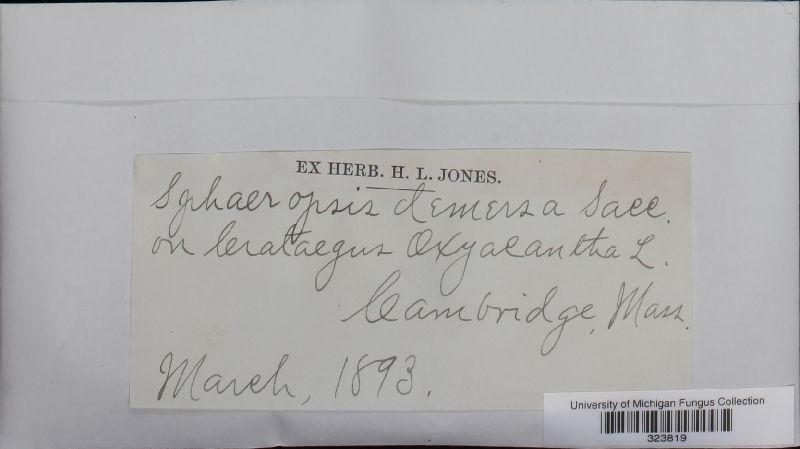 EX HERB. H. L. JONES.
Sphaeropsis demersa Sacc.
on Crataegus Oxyacantha L.
Cambridge, Mass.
March, 1893.
University of Michigan Fungus Collection
323819